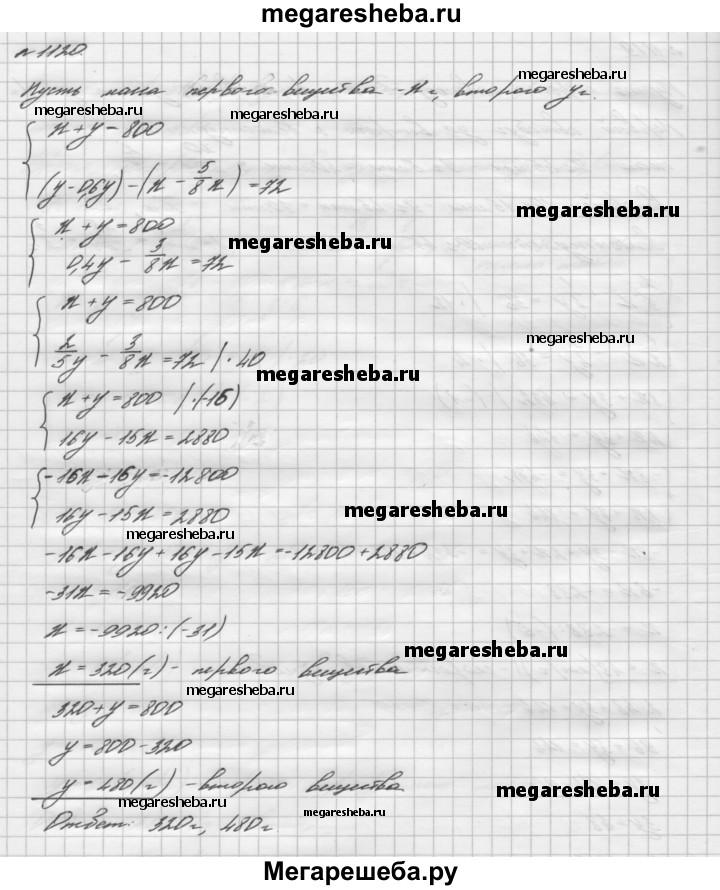 megaresheba.ru
№1120.
megaresheba.ru
Пусть масса первого вещества - x г, второго y г.
megaresheba.ru megaresheba.ru
x + y = 800
(y - 0,6y) - (x - 5/8 x) = 72
megaresheba.ru
x + y = 800
megaresheba.ru
0,4y - 3/8 x = 72
x + y = 800
megaresheba.ru
2/5 y - 3/8 x = 72 | · 40
megaresheba.ru
x + y = 800 | · (-16)
16y - 15x = 2880
-16x - 16y = -12800
megaresheba.ru
16y - 15x = 2880
megaresheba.ru
-16x - 16y + 16y - 15x = -12800 + 2880
-31x = -9920
x = -9920 : (-31)
megaresheba.ru
x = 320 (г) - первого вещества
megaresheba.ru
320 + y = 800
y = 800 - 320
y = 480 (г) - второго вещества
megaresheba.ru
megaresheba.ru megaresheba.ru
Ответ: 320 г, 480 г
Мегарешеба.ру